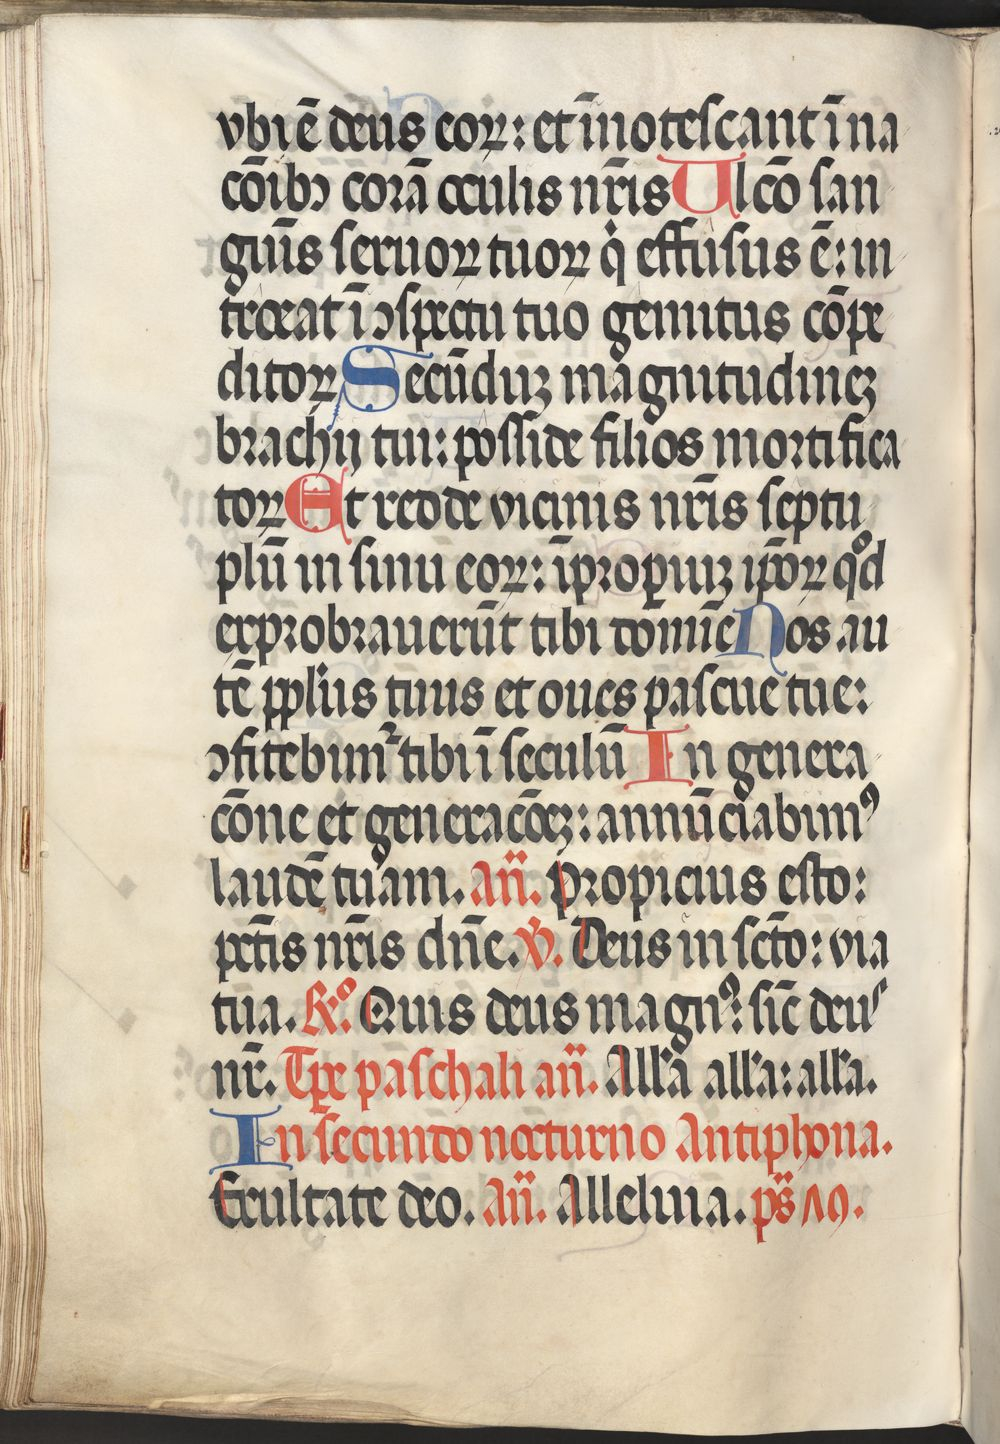 vbi ē deus eoꝝ: et īnotescant ī na
cōibꝫ corā oculis nr̄is Ulcō san
guīs seruoꝝ tuoꝝ q̇ effusus ē: in
treat̄ ī ↄspectu tuo gemitus cōpe
ditoꝝ Secūduꝫ magnitudineꝫ
brachij tui: posside filios mortifica
toꝝ Et redde vicinis nr̄is septu
plū in sinu eoꝝ: īproꝑiuꝫ ip̄oꝝ qᵒd
exprobrauerūt tibi domīe Nos au
tē ppl'us tuus et oues pascue tue:
ↄfitebimᷣ tibi ī seculū In genera
cōne et generacōeꝫ: annūciabimꝰ
laudē tuam. añ. Propicius esto:
pctīs nr̄is dn̄e. ℣. Deus in sctō: via
tua. Rᵒ. Quis deus magnꝰ: sīc deus
nr̄. Tp̄e paschali añ. All'a all'a: all'a.
In secundo nocturno Antiphona.
Exultate deo. Añ. Alleluia. ps̄ Λ9.